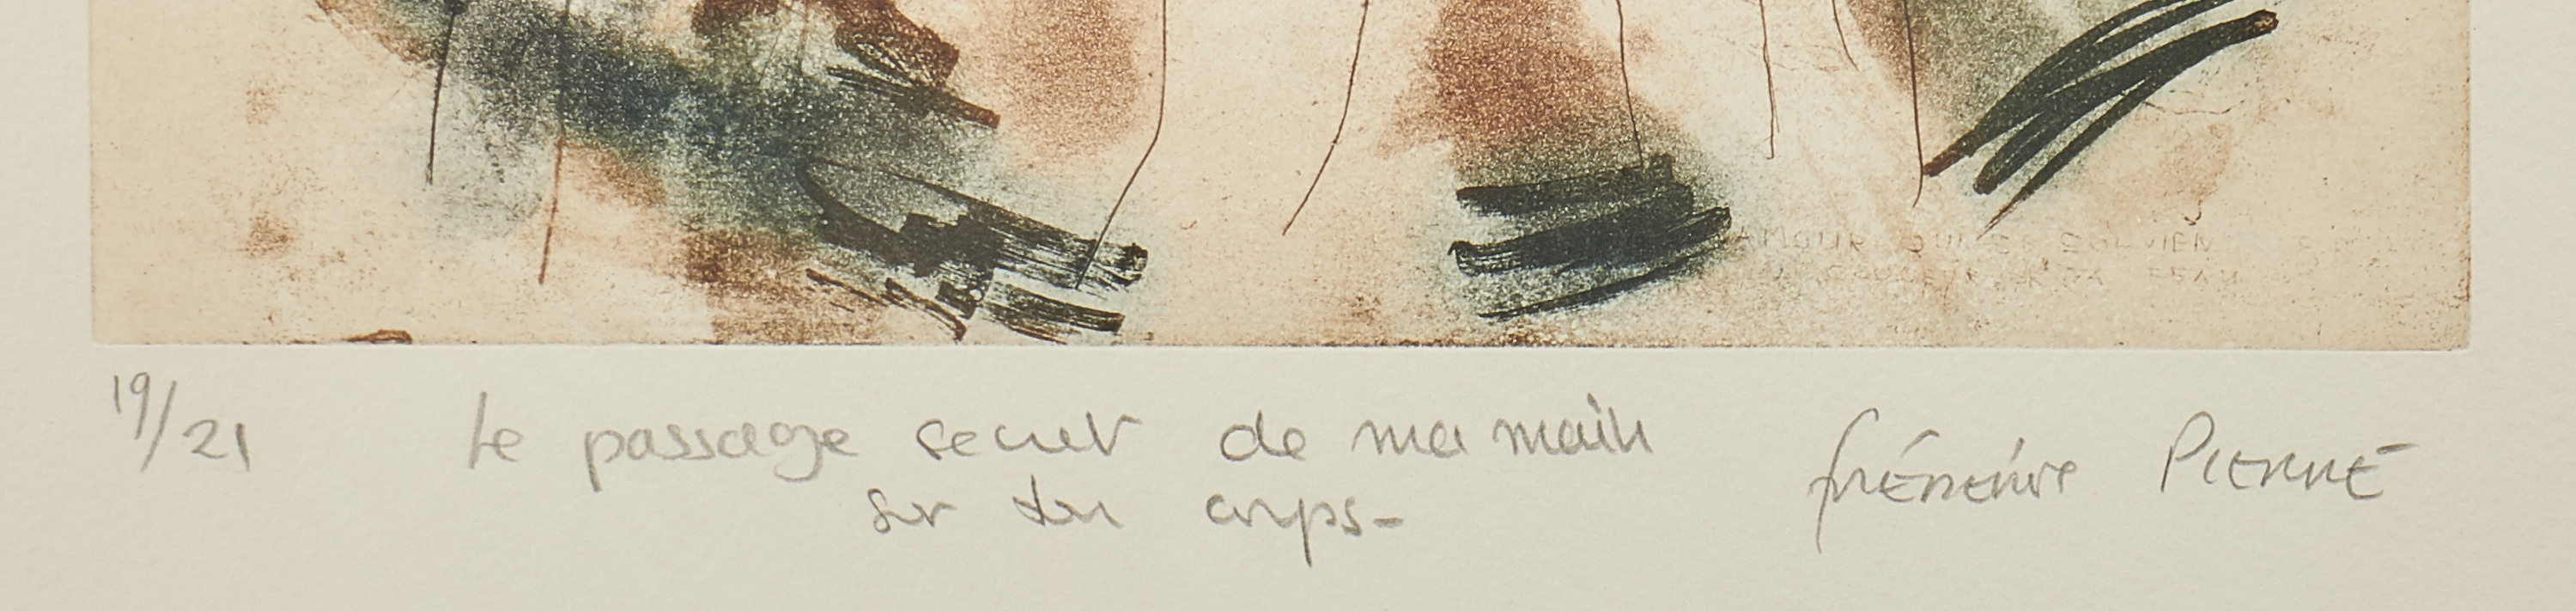 AMOUR QUI SE SOUVIENT
19/21 Le passage secret de ma main
sur ton corps-
frédérique PIERRE